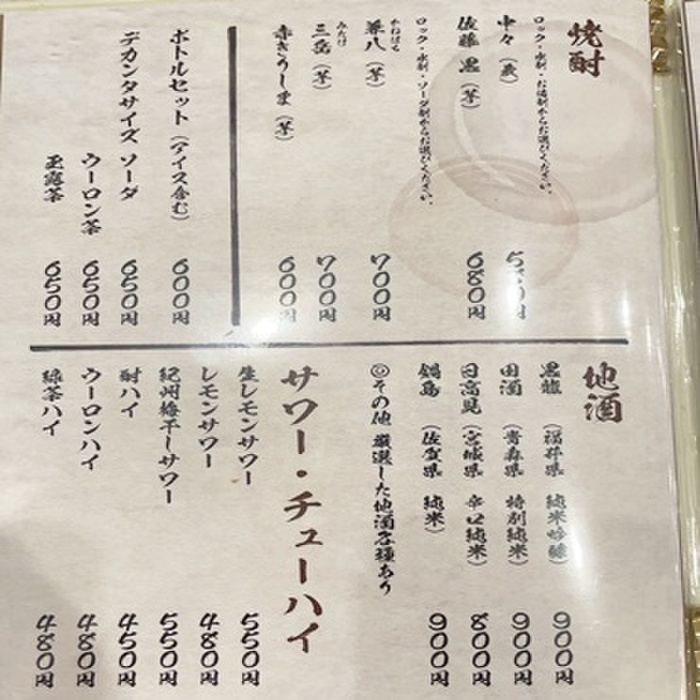 焼酎
ロック・水割・お湯割からお選びください。
中々（麦）
佐藤 黒（芋） 680円
ロック・水割・ソーダ割からお選びください。
かねはち
兼八（芋） 700円
みたけ
三岳（芋） 700円
赤きりしま（芋） 600円
ボトルセット（アイス含む） 600円
デカンタサイズ ソーダ 650円
ウーロン茶 650円
玉露茶 650円
地酒
黒龍（福井県 純米吟醸） 900円
田酒（青森県 特別純米） 900円
日高見（宮城県 辛口純米） 800円
鍋島（佐賀県 純米） 900円
◎その他 厳選した地酒各種あり
サワー・チューハイ
生レモンサワー 550円
レモンサワー 480円
紀州梅干しサワー 550円
酎ハイ 450円
ウーロンハイ 480円
緑茶ハイ 480円